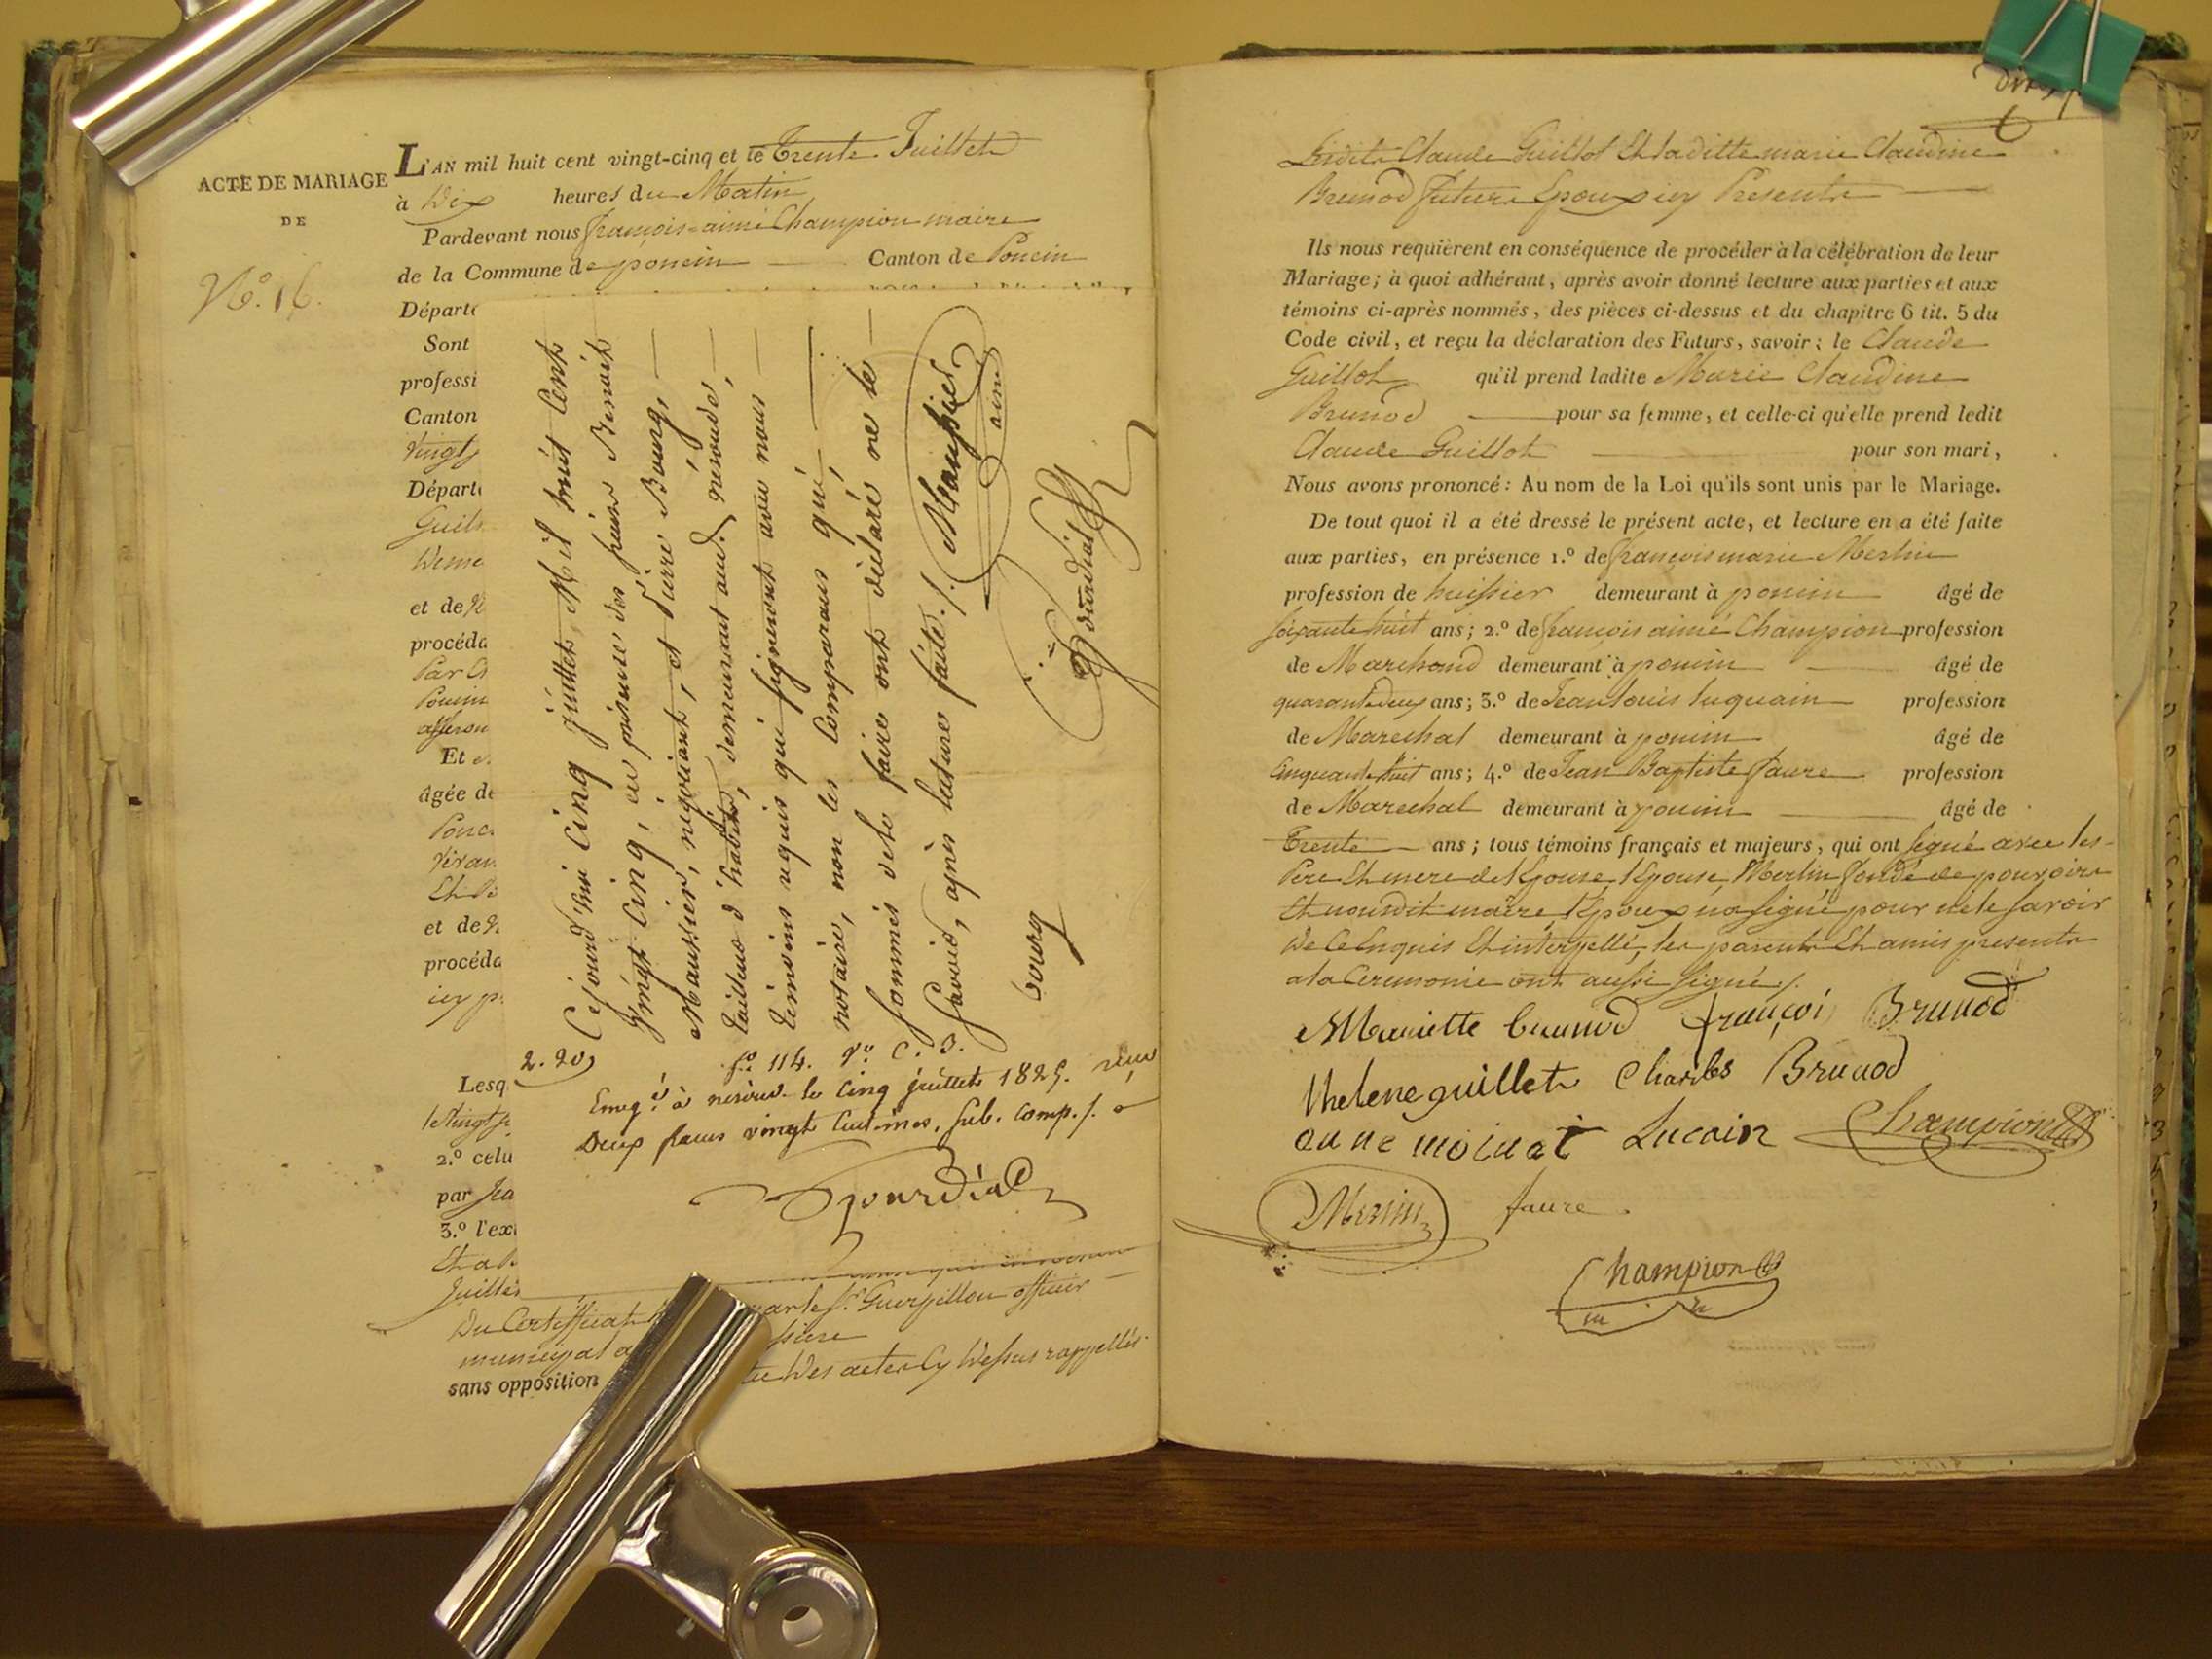 ACTE DE MARIAGE
DE
N.o 16.
L'AN mil huit cent vingt-cinq et le Trente Juillet
à Dix heures du Matin
Pardevant nous françois-aimé Champion maire
de la Commune de poncin Canton de Poncin
Départe
Sont
professi
Canton
Vingt
Départe
Guill
Deme
et de
procéda
Par
Poncin
Et
âgée de
Ponc
et de
procéda
icy p
Lesq
2.o celu
par Jea
3.o l'ex
Juillet
Du Certifficat
municipal
sans opposition des actes Cy Dessus rappellés
Cejourd'hui Cinq juillet, Mil huit Cent
Vingt Cinq, en présence des sieurs Benoit
Maussier, négociant, et Pierre Bourg,
tailleur d'habits, demeurant aud. neronde,
témoins requis qui signeront avec nous
notaire, non les Comparans qui,
sommés de le faire ont déclaré ne le
Savoir, après lecture faite ./.
Maussier
ainé
bourg
2.20
f.o 114. v.o C. 3.
Enreg.é à néronde le Cinq juillet 1825. reçu
Deux francs vingt Centimes, sub. comp. /.
Ledit Claude Guillot Et laditte marie Claudine
Brunod future Epoux icy Presents
Ils nous requièrent en conséquence de procéder à la célébration de leur
Mariage; à quoi adhérant, après avoir donné lecture aux parties et aux
témoins ci-après nommés, des pièces ci-dessus et du chapitre 6 tit. 5 du
Code civil, et reçu la déclaration des Futurs, savoir; le Claude
Guillot qu'il prend ladite Marie Claudine
Brunod pour sa femme, et celle-ci qu'elle prend ledit
Claude Guillot pour son mari,
Nous avons prononcé: Au nom de la Loi qu'ils sont unis par le Mariage.
De tout quoi il a été dressé le présent acte, et lecture en a été faite
aux parties, en présence 1.o de françois marie Merlin
profession de huissier demeurant à poncin âgé de
soixante huit ans; 2.o de françois aimé Champion profession
de Marchand demeurant à poncin âgé de
quarante deux ans; 3.o de Jean Louis luquain profession
de Marechal demeurant à poncin âgé de
Cinquante huit ans; 4.o de Jean Baptiste faure profession
de Marechal demeurant à poncin âgé de
Trente ans; tous témoins français et majeurs, qui ont signé avec les
Pere Et mere de l'Epouse l'épouse, Merlin fondé de pouvoirs
Et nousdit maire l'époux na signé pour ne le savoir
De Ce Enquis Et interpellé, les parents Et amis presents
a la Ceremonie ont aussi signé /.
Mariette brunod françoi Brunod
thelene guillet Charles Brunod
anne moinat Lucain Champion
Merlin faure
Champion